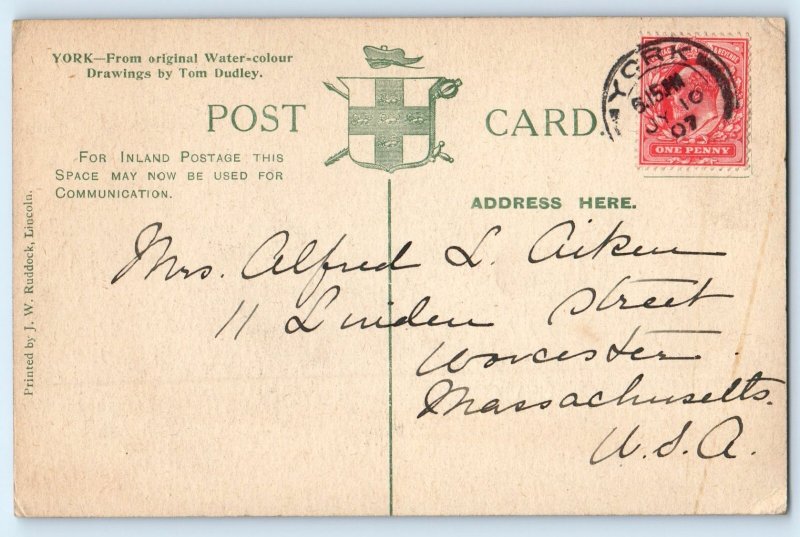 YORK—From original Water-colour
Drawings by Tom Dudley.
POST CARD.
FOR INLAND POSTAGE THIS
SPACE MAY NOW BE USED FOR
COMMUNICATION.
ADDRESS HERE.
Printed by J. W. Ruddock, Lincoln.
YORK
5.15 PM
JY 10
07
ONE PENNY
Mrs. Alfred L. Aiken
11 Linden Street
Worcester
Massachusetts.
U.S.A.